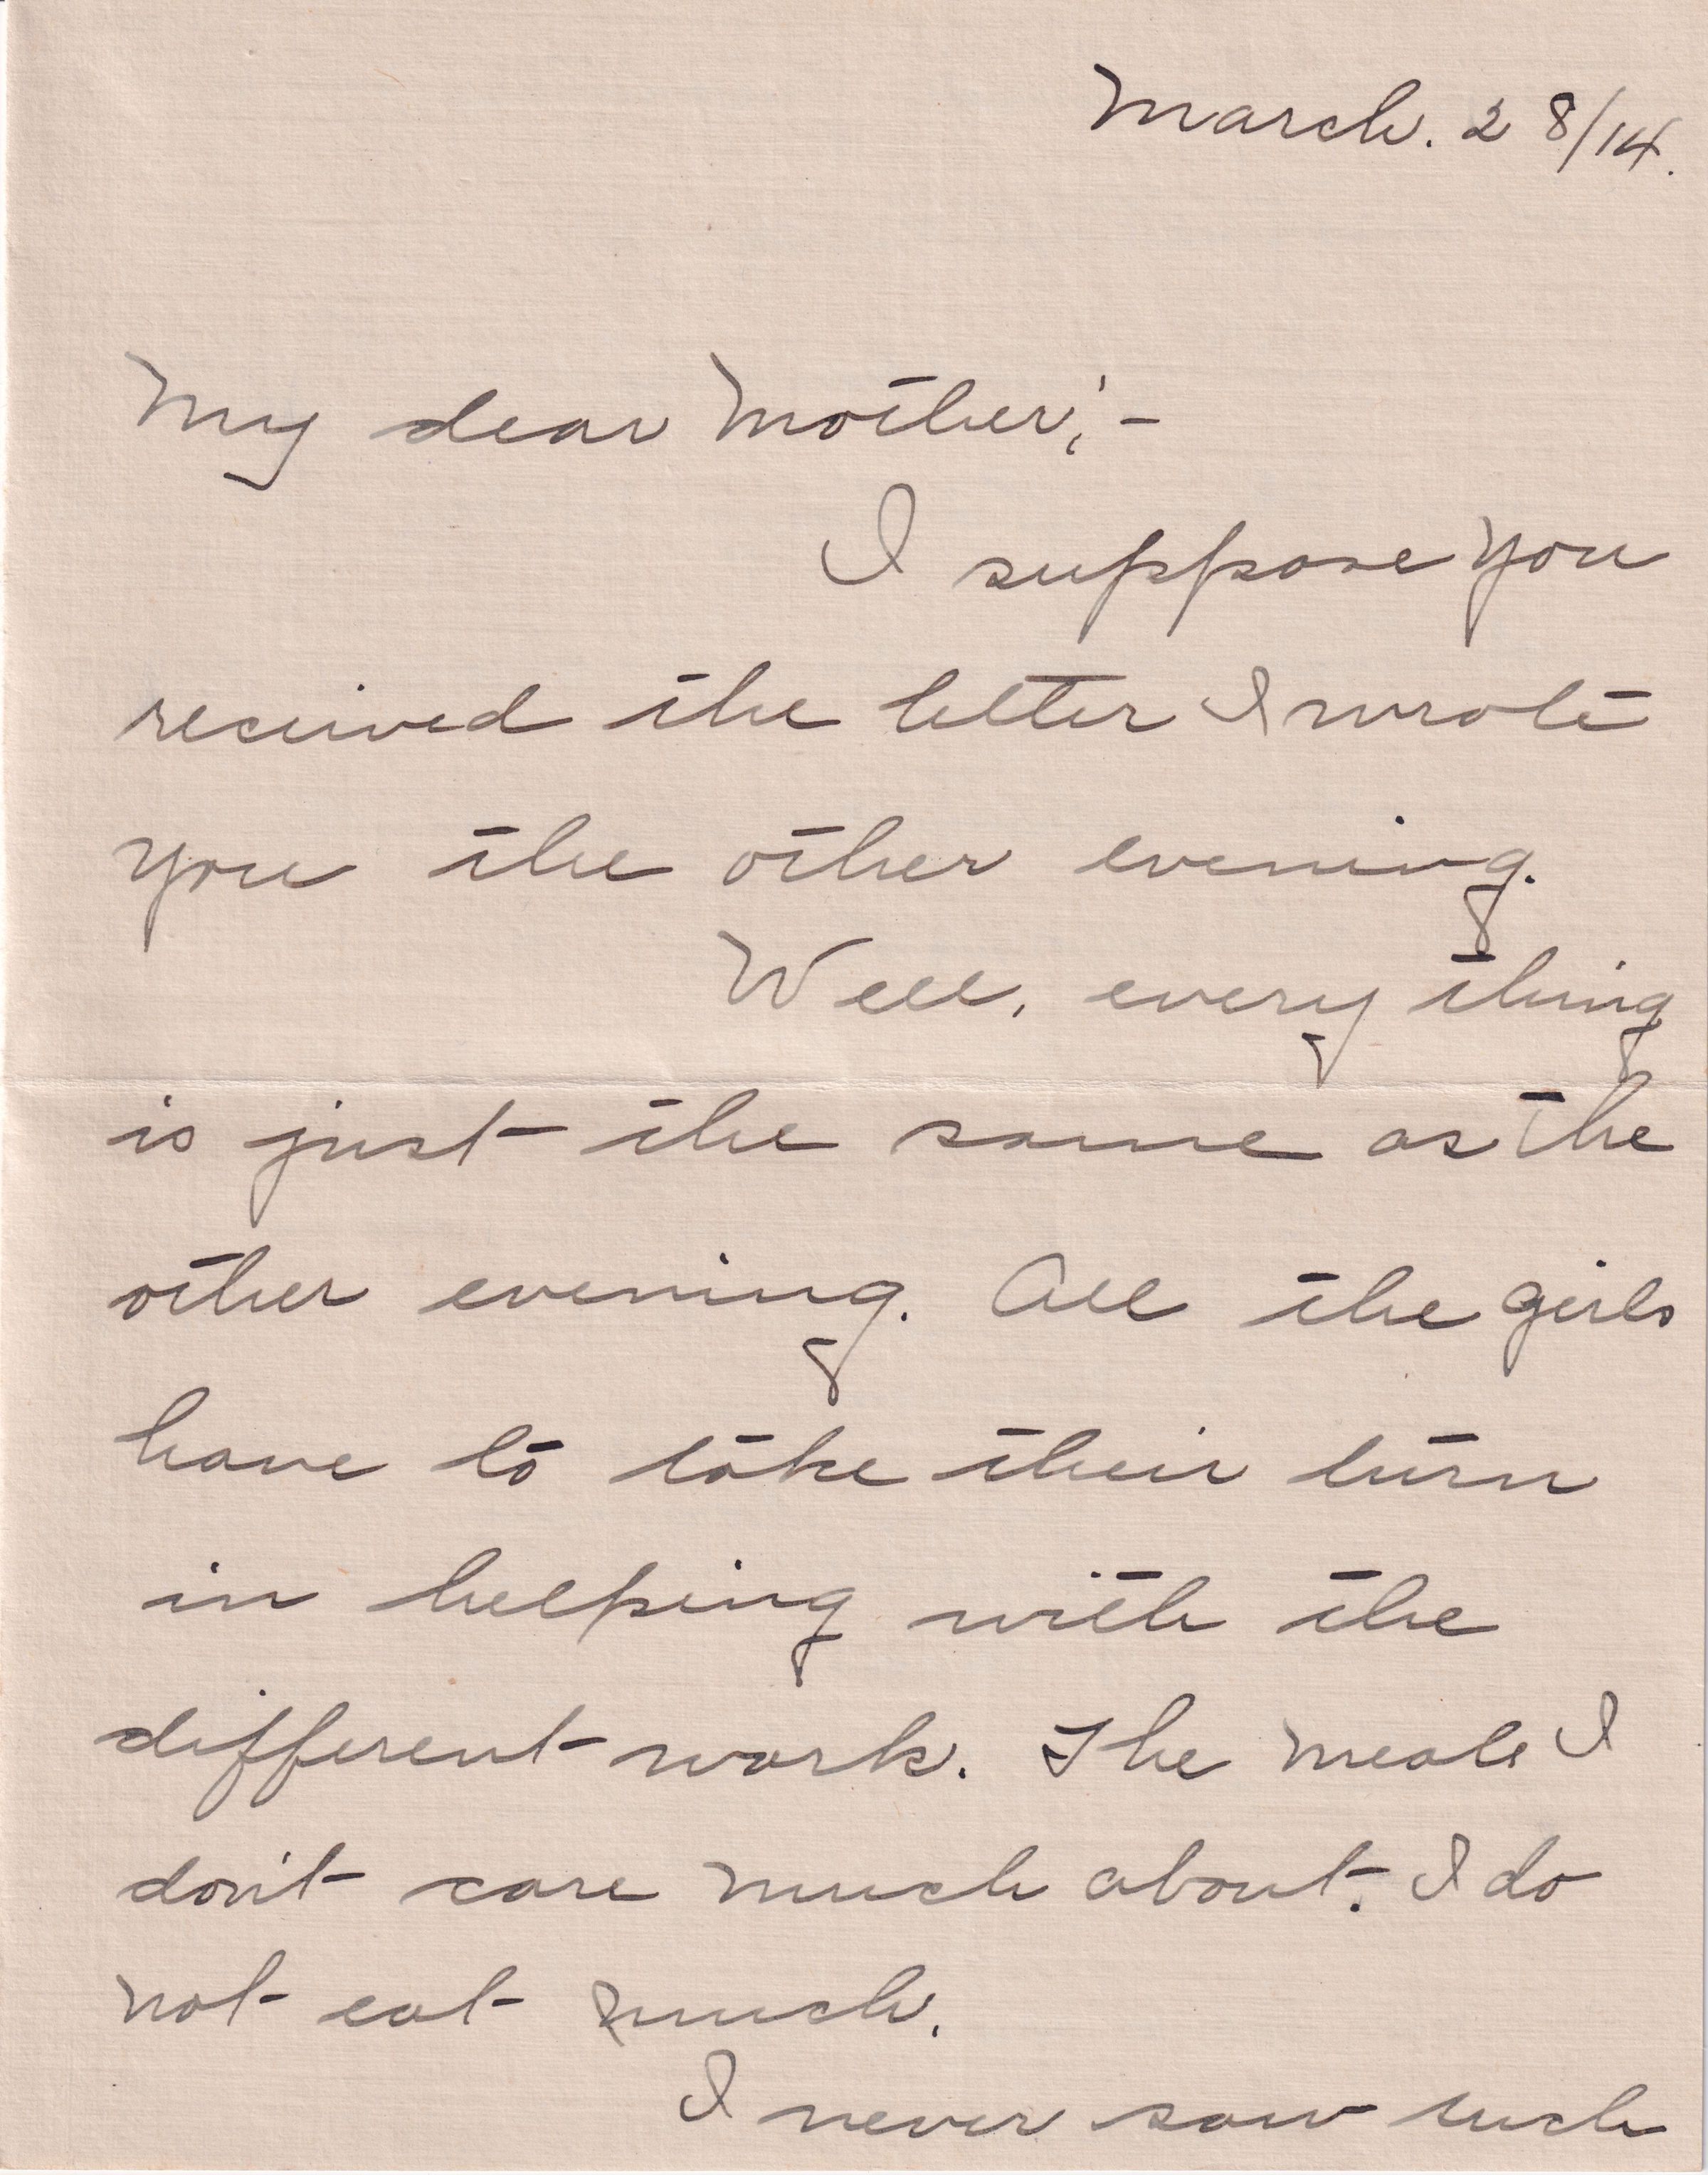 March. 28/14.
My dear Mother;-
I suppose you
received the letter I wrote
you the other evening.
Well, every thing
is just the same as the
other evening. All the girls
have to take their turn
in helping with the
different work. The meals I
don't care much about. I do
not eat much.
I never saw such